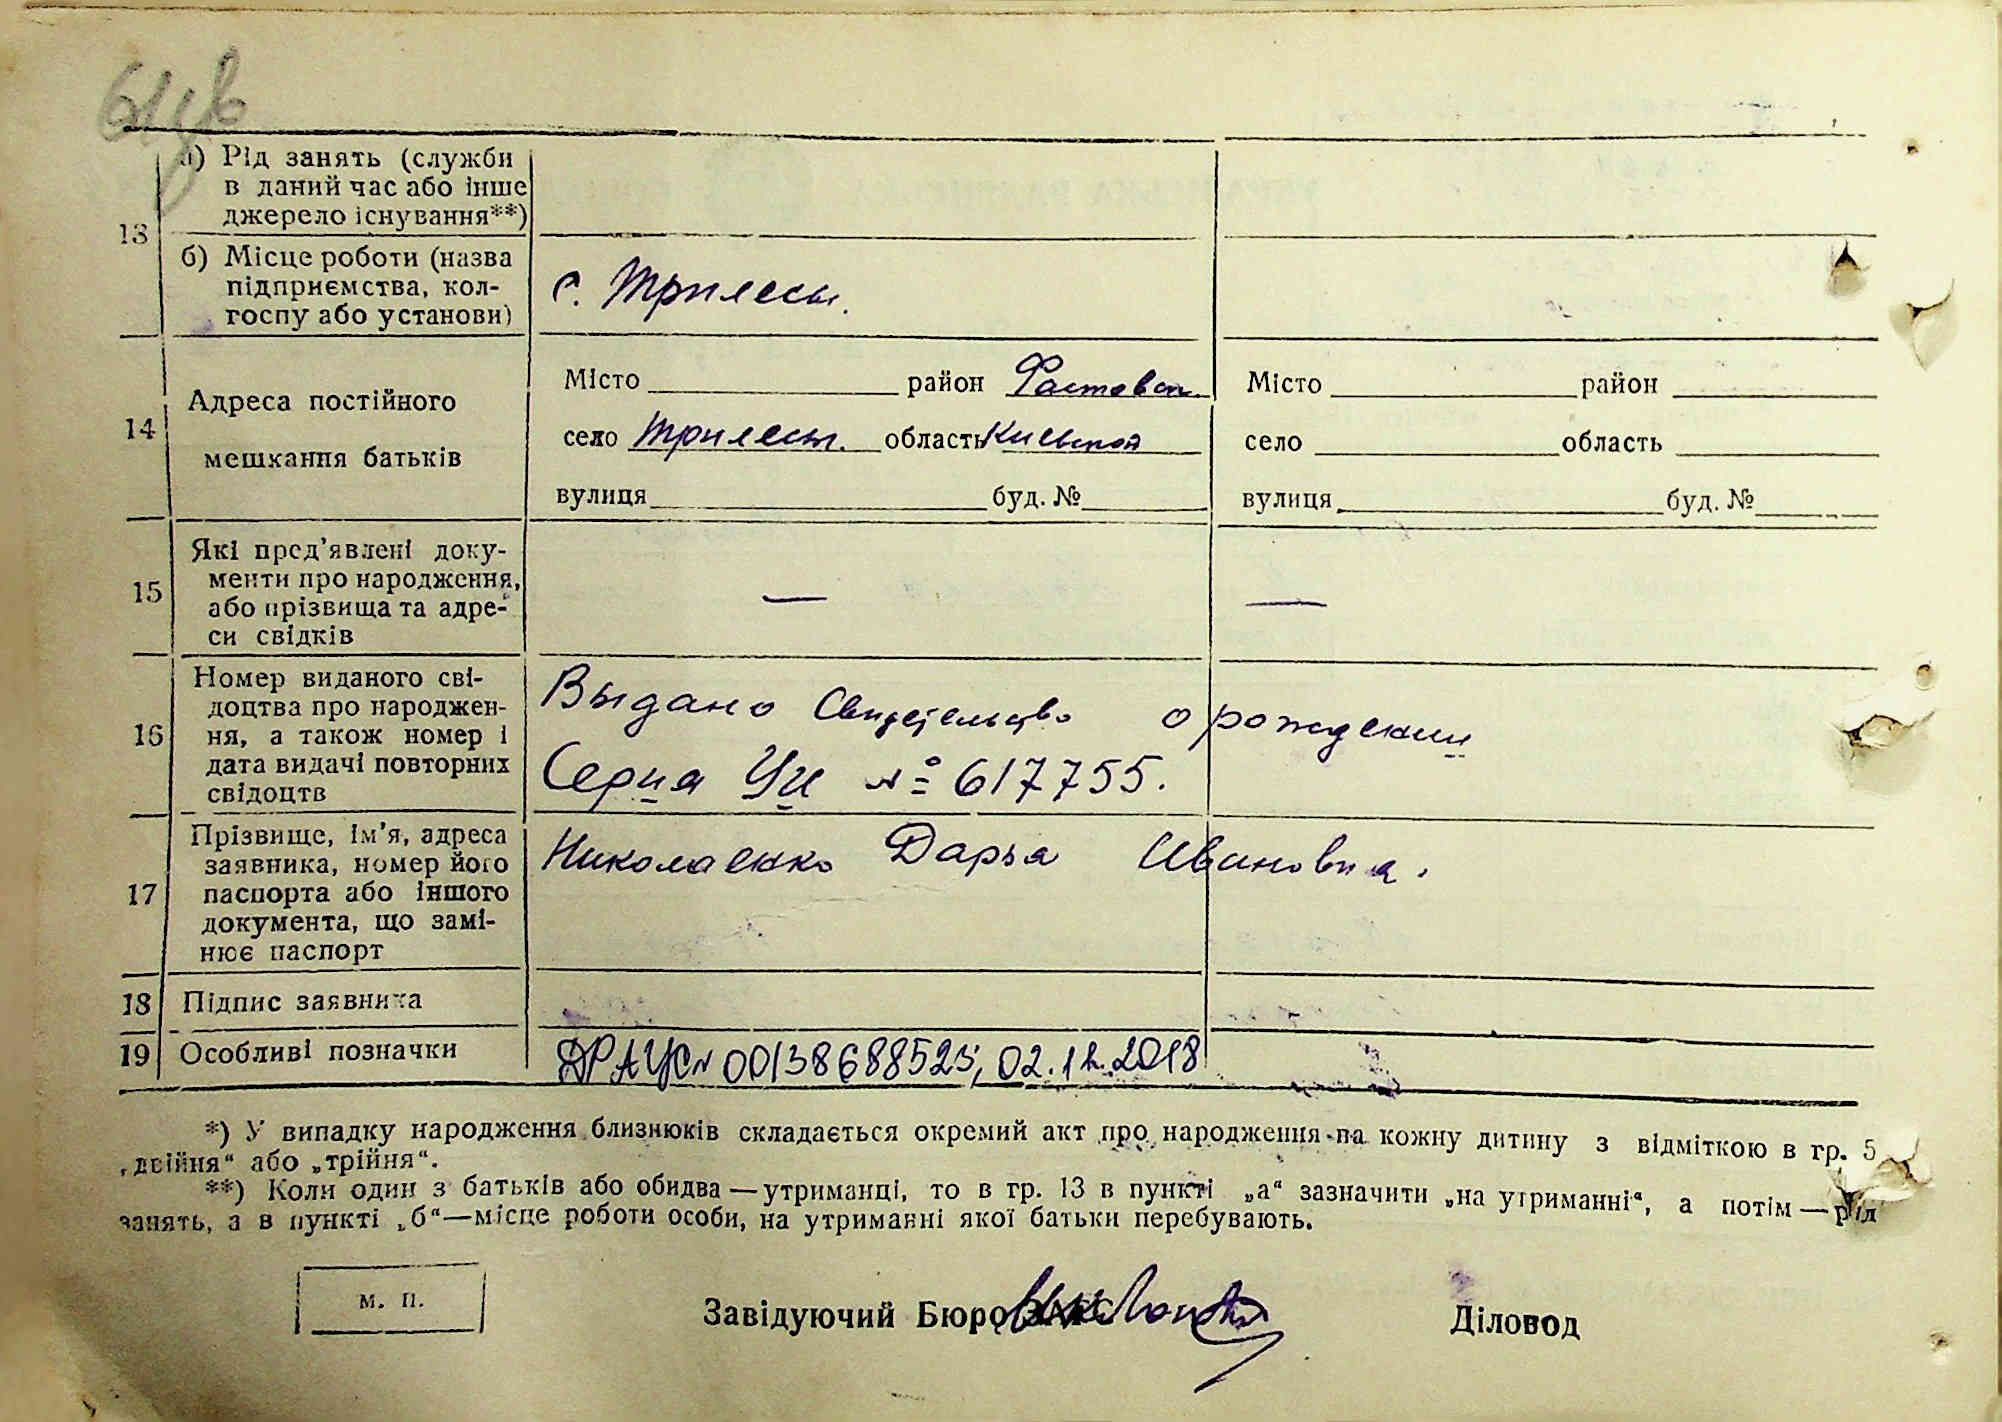 13
а) Рід занять (служби
в даний час або інше
джерело існування**)
б) Місце роботи (назва
підприємства, кол-
госпу або установи)
с. Трилесы.
14
Адреса постійного
мешкання батьків
Місто район Фастовск.
село Трилесы. область Киевской
вулиця буд. №
Місто район
село область
вулиця буд. №
15
Які пред'явлені доку-
менти про народження,
або прізвища та адре-
си свідків
—
—
16
Номер виданого сві-
доцтва про народжен-
ня, а також номер і
дата видачі повторних
свідоцтв
Выдано Свидетельство о рождении
Серия Уи № 617755.
17
Прізвище, ім'я, адреса
заявника, номер його
паспорта або іншого
документа, що замі-
нює паспорт
Николаенко Дарья Ивановна.
18
Підпис заявника
19
Особливі позначки
ДРАЦС № 00138688523, 02.12.2018
*) У випадку народження близнюків складається окремий акт про народження на кожну дитину з відміткою в гр. 5
„двійня“ або „трійня“.
**) Коли один з батьків або обидва — утриманці, то в гр. 13 в пункті „а“ зазначити „на утриманні“, а потім — рід
занять, а в пункті „б“ — місце роботи особи, на утриманні якої батьки перебувають.
М. П.
Завідуючий Бюро ЗАГС
Діловод